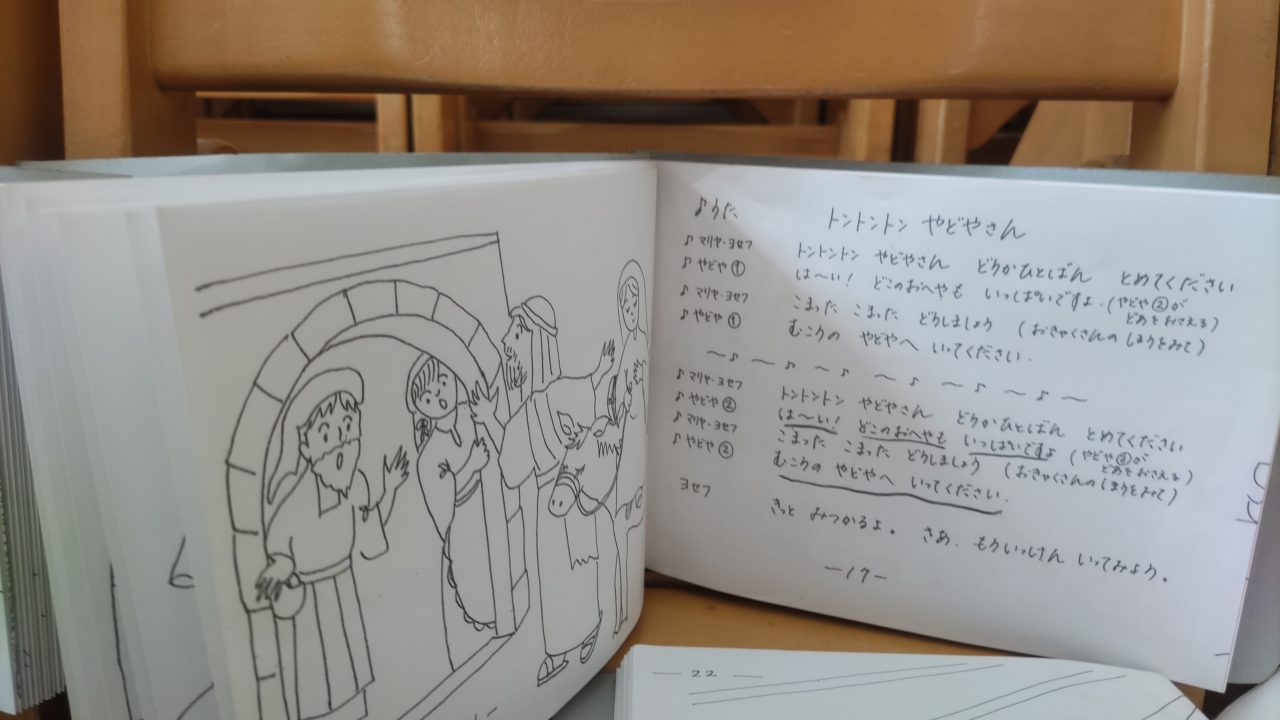 ♪うた トントントン やどやさん
♪マリヤ・ヨセフ トントントン やどやさん どうかひとばん とめてください
♪やどや① は〜い! どこのおへやも いっぱいですよ.(やどや②が どあをおさえる)
♪マリヤ・ヨセフ こまった こまった どうしましょう (おきゃくさんの ほうをみて)
♪やどや① むこうの やどやへ いってください.
〜♪〜♪〜♪〜♪〜♪〜♪〜
♪マリヤ・ヨセフ トントントン やどやさん どうかひとばん とめてください
♪やどや② は〜い! どこのおへやも いっぱいですよ (やどや③が どあをおさえる)
♪マリヤ・ヨセフ こまった こまった どうしましょう (おきゃくさんのほうをみて)
♪やどや② むこうの やどやへ いってください.
ヨセフ きっと みつかるよ。 さあ、もういっけん いってみよう。
—17—
6
— 22 —